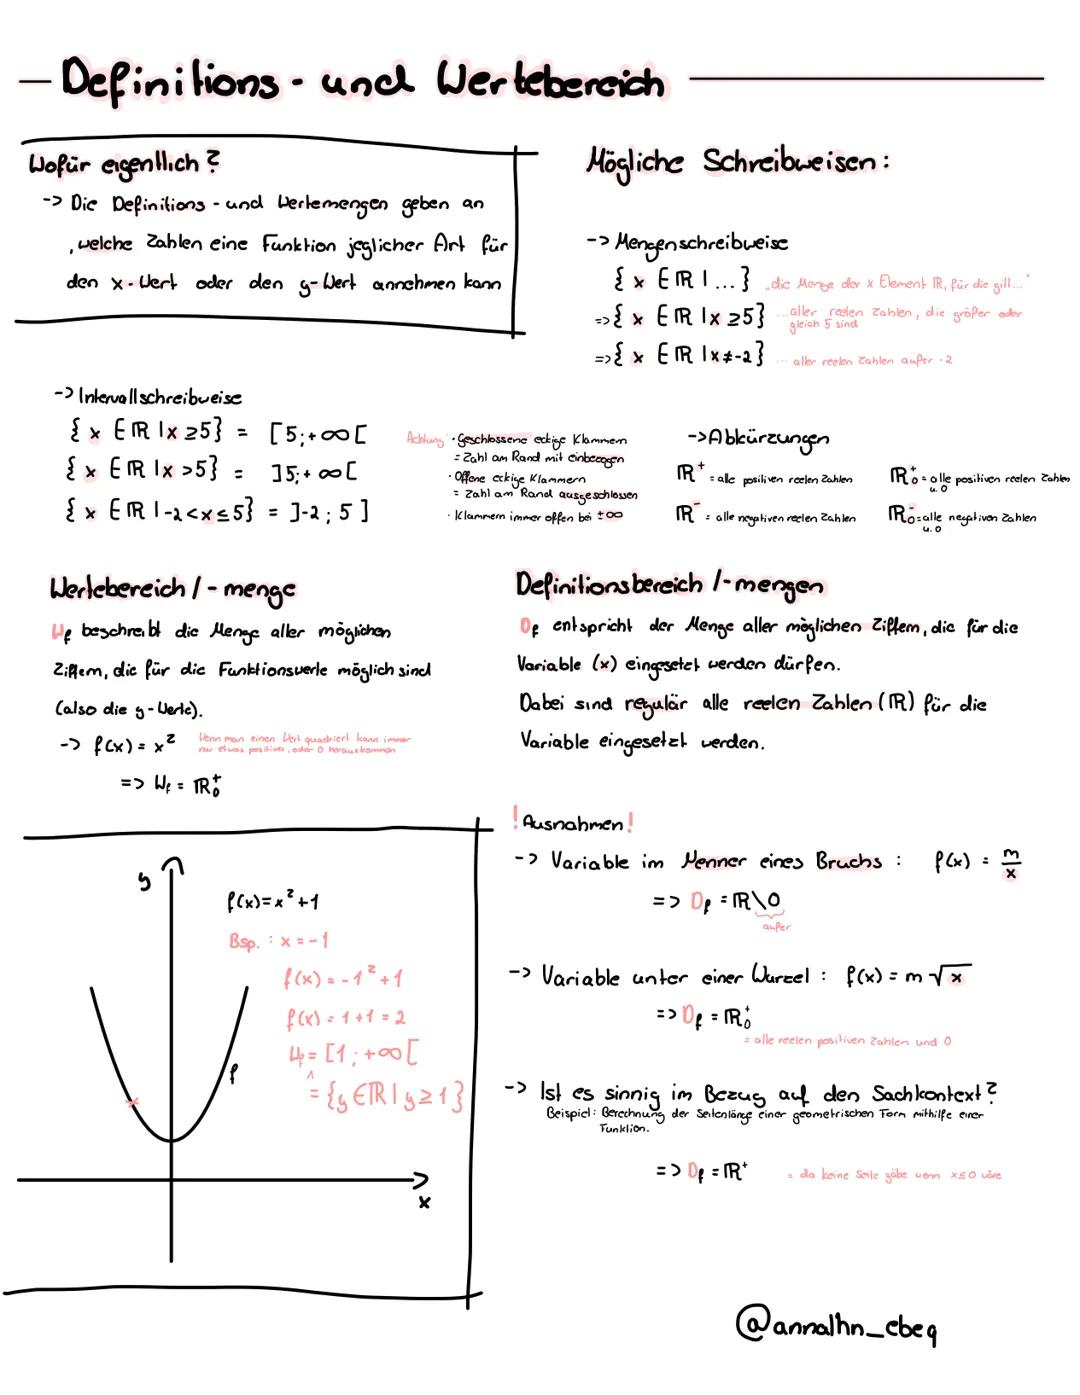 Definitions - und Wertebereich
Wofür eigentlich?
-> Die Definitions - und Wertemengen geben an
, welche Zahlen eine Funktion jeglicher Art für
den x-Wert oder den y-Wert annehmen kann
Mögliche Schreibweisen:
-> Mengenschreibweise
{ x ∈ ℝ | ... } „die Menge der x Element ℝ, für die gill..."
=> { x ∈ ℝ | x ≥ 5 } ...aller reelen Zahlen, die größer oder
gleich 5 sind
=> { x ∈ ℝ | x ≠ -2 } ... aller reelen Zahlen außer -2
-> Intervallschreibweise
{ x ∈ ℝ | x ≥ 5 } = [5; +∞[
{ x ∈ ℝ | x > 5 } = ]5; +∞[
{ x ∈ ℝ | -2 < x ≤ 5 } = ]-2; 5]
Achtung · Geschlossene eckige Klammern
= Zahl am Rand mit einbezogen
· Offene eckige Klammern
= Zahl am Rand ausgeschlossen
· Klammern immer offen bei ±∞
-> Abkürzungen
ℝ⁺ = alle positiven reelen Zahlen
ℝ₀⁺ = alle positiven reelen Zahlen
u. 0
ℝ⁻ = alle negativen reelen Zahlen
ℝ₀⁻ = alle negativen Zahlen
u. 0
Wertebereich / - menge
Wf beschreibt die Menge aller möglichen
Ziffern, die für die Funktionswerte möglich sind
(also die y-Werte).
-> f(x) = x² Wenn man einen Wert quadriert kann immer
nur etwas positives, oder 0 herauskommen
=> Wf = ℝ₀⁺
Definitionsbereich / - mengen
Df entspricht der Menge aller möglichen Ziffern, die für die
Variable (x) eingesetzt werden dürfen.
Dabei sind regulär alle reelen Zahlen (ℝ) für die
Variable eingesetzt werden.
! Ausnahmen !
-> Variable im Nenner eines Bruchs : f(x) = m/x
=> Df = ℝ\0
außer
-> Variable unter einer Wurzel : f(x) = m √x
=> Df = ℝ₀⁺
= alle reelen positiven Zahlen und 0
-> Ist es sinnig im Bezug auf den Sachkontext?
Beispiel: Berechnung der Seitenlänge einer geometrischen Form mithilfe einer
Funktion.
=> Df = ℝ⁺ = da keine Seite gäbe wenn x ≤ 0 wäre
y
f(x) = x² + 1
Bsp. : x = -1
f(x) = -1² + 1
f(x) = 1 + 1 = 2
Wf = [1; +∞[
≙ {y ∈ ℝ | y ≥ 1}
f
x
@annalhn_ebeq